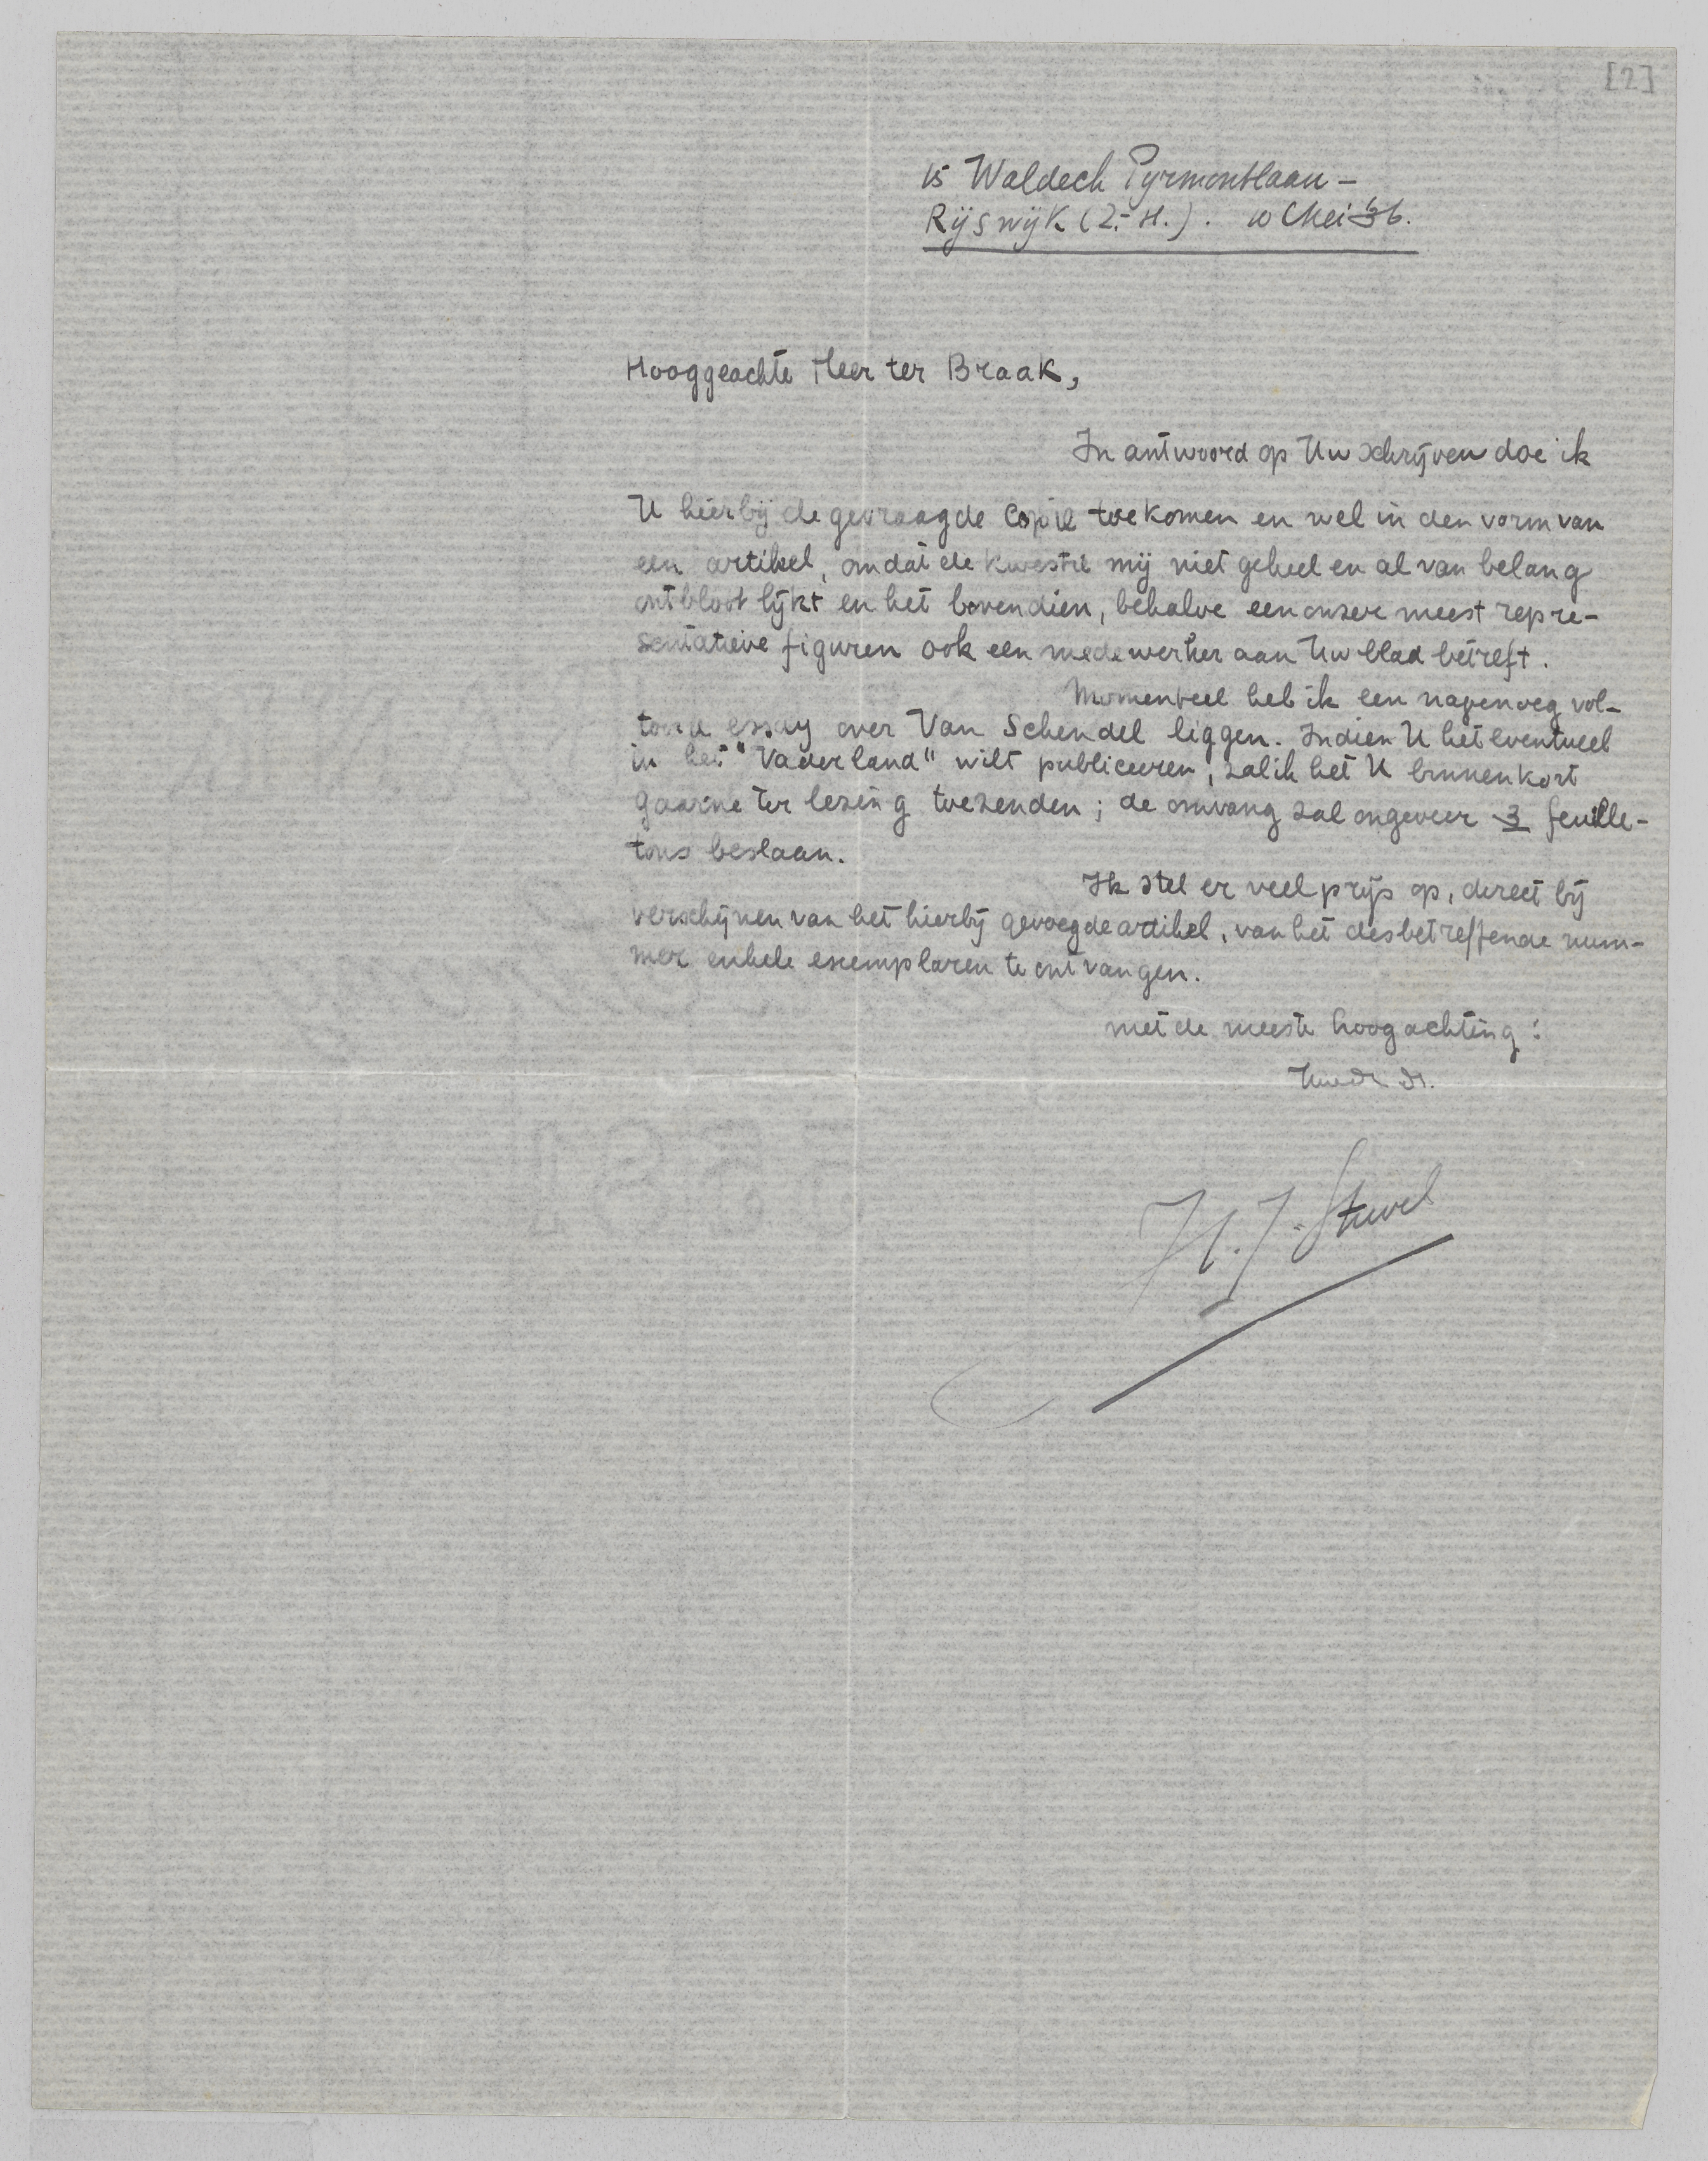 [2]
15 Waldeck Pyrmontlaan –
Rijswijk (Z.-H.). 10 Mei '36.
Hooggeachte Heer ter Braak,
In antwoord op Uw schrijven doe ik
U hierbij de gevraagde copie toekomen en wel in den vorm van
een artikel, omdat de kwestie mij niet geheel en al van belang
ontbloot lijkt en het bovendien, behalve een onzer meest repre-
sentatieve figuren ook een medewerker aan Uw blad betreft.
Momenteel heb ik een nagenoeg vol-
tooid essay over Van Schendel liggen. Indien U het eventueel
in het "Vaderland" wilt publiceeren, zal ik het U binnenkort
gaarne ter lezing toezenden; de omvang zal ongeveer 3 feuille-
tons beslaan.
Ik stel er veel prijs op, direct bij
verschijnen van het hierbij gevoegde artikel, van het desbetreffende num-
mer enkele exemplaren te ontvangen.
met de meeste hoogachting:
Uw dr.
H. J. Stuvel